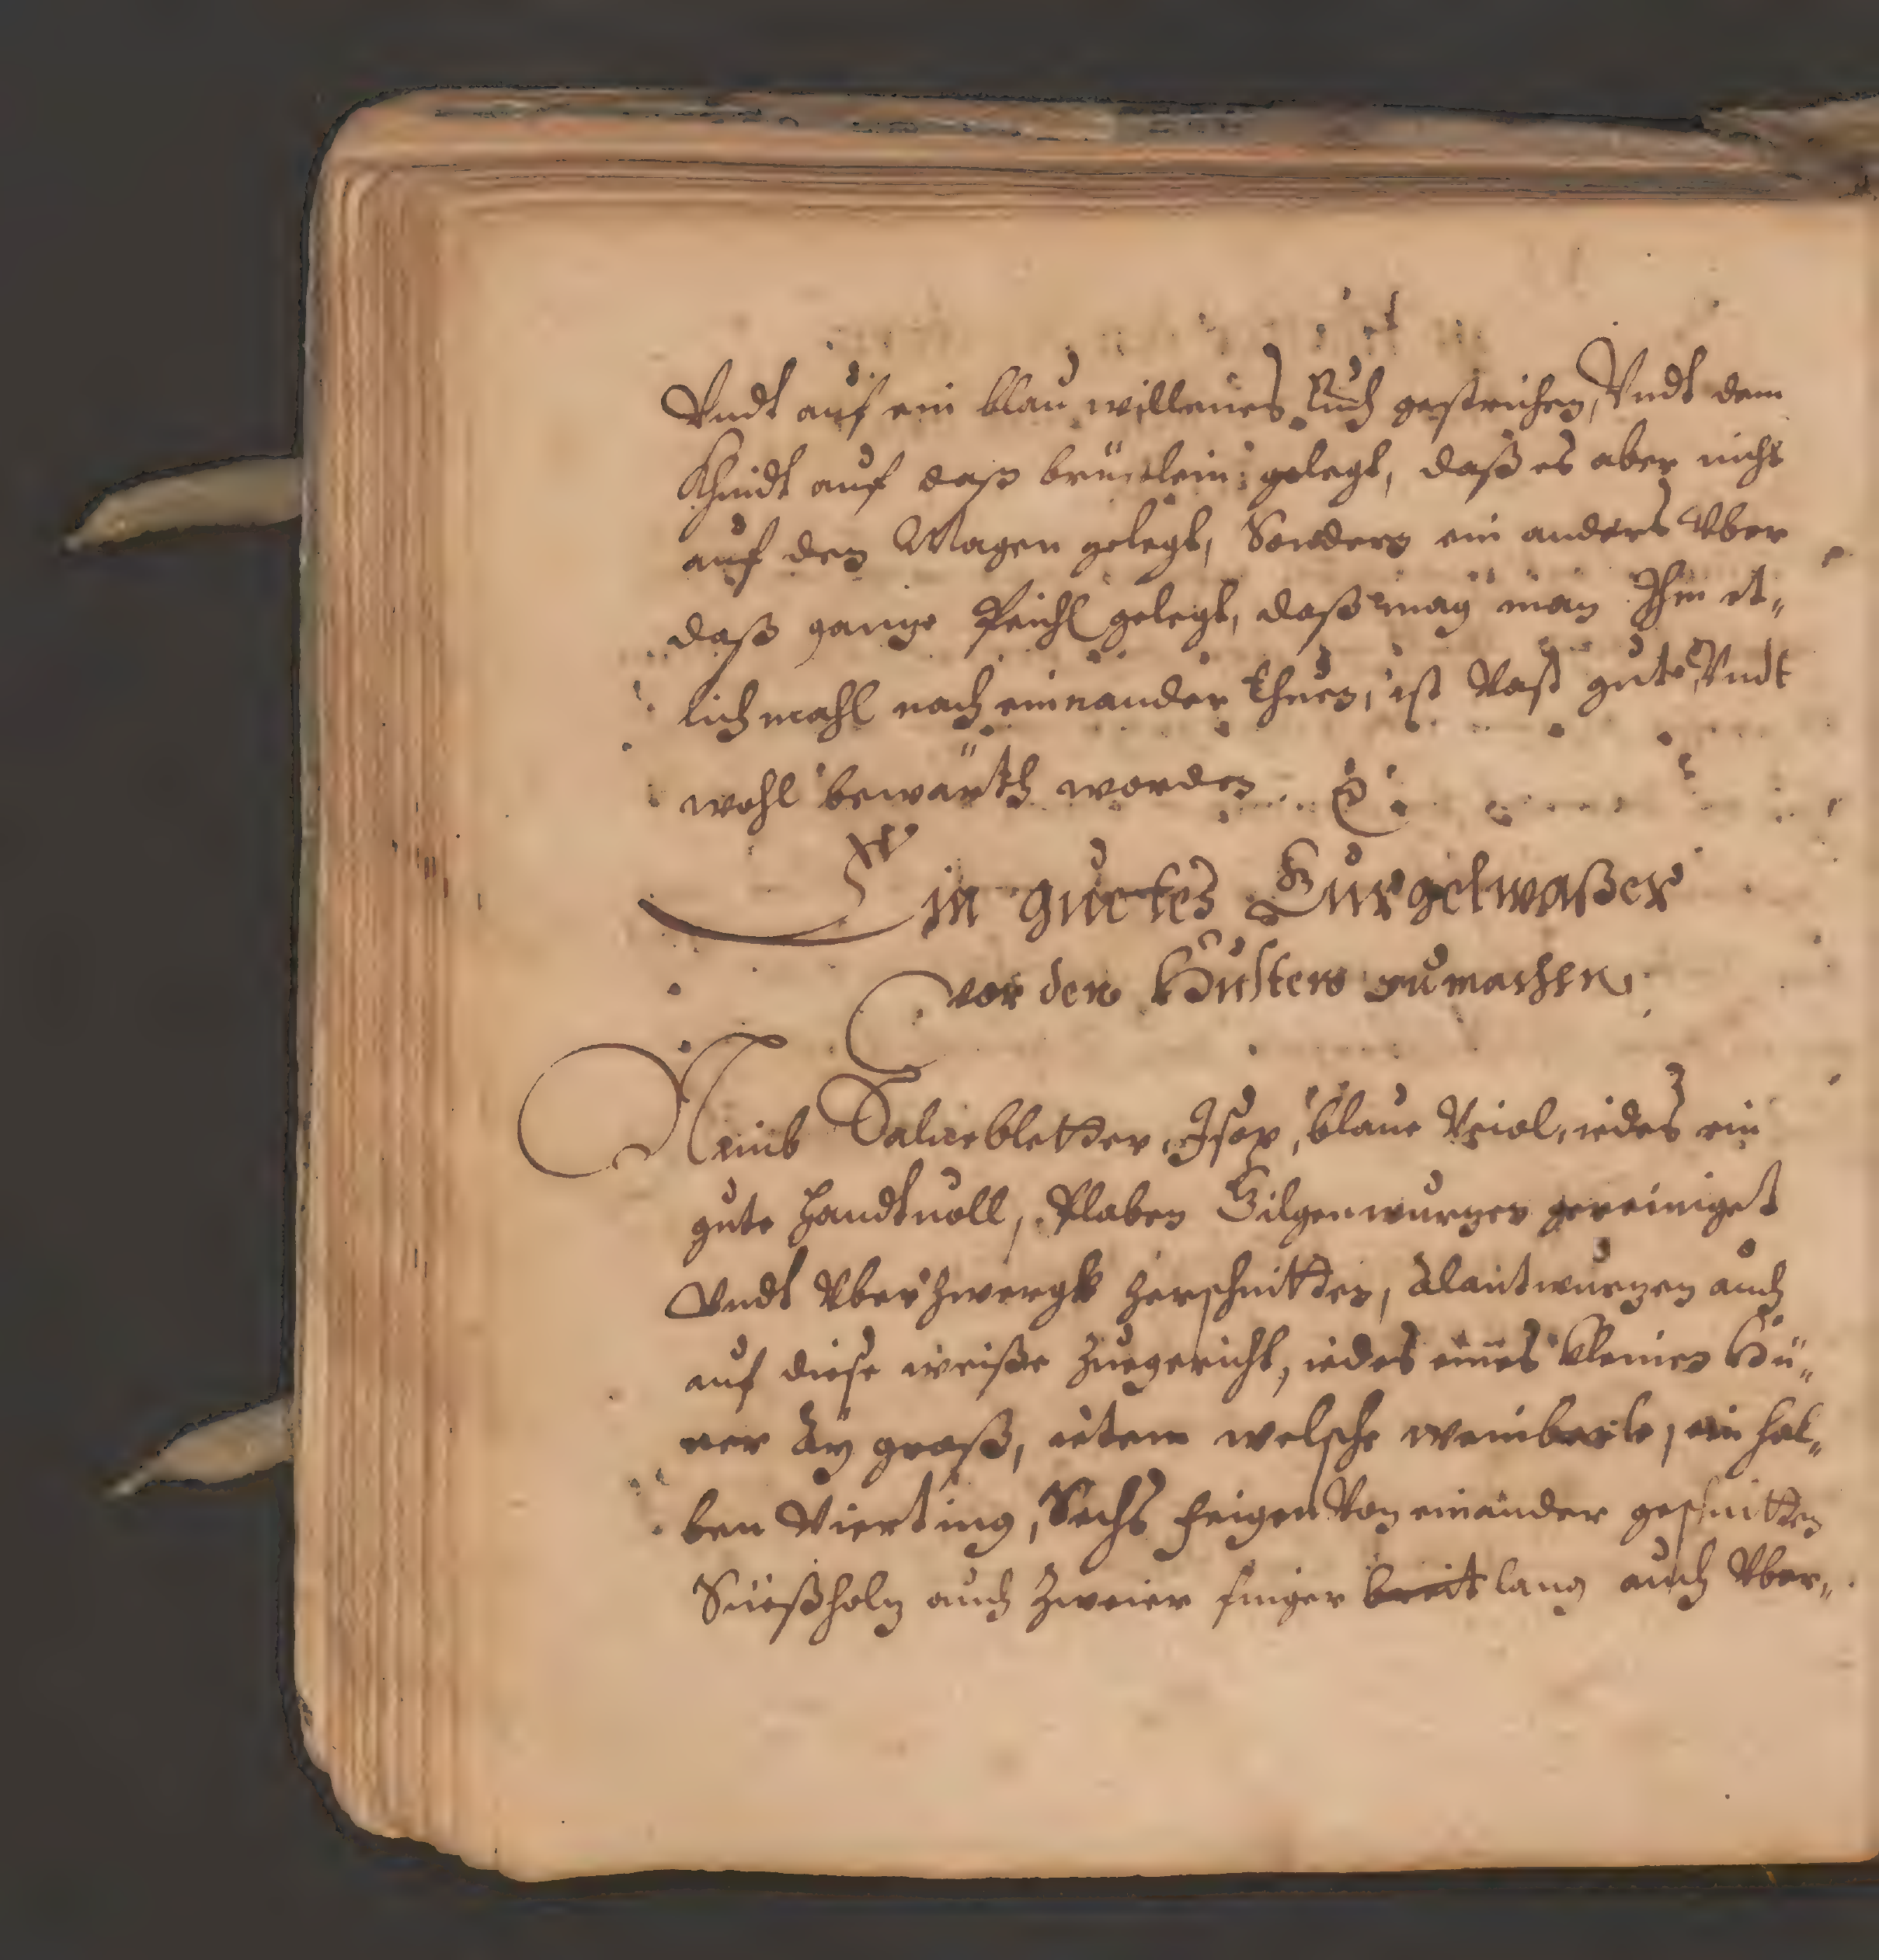 Vndt auf ein blau willenes Tuch gestrichen, Vndt dem
Khindt auf daß brüstlein gelegt, daß es aber nicht
auf den Magen gelegt, Sondern ein anders Vber
daß gantze Peichl gelegt, daß mag man Ihm et„
lich mahl nach einnander thuen, ist Vast gute Vndt
wohl bewärth worden
Ein guetes Gurgelwaßer
vor den Husten zumachen
Nimb Salueblettder, Isop, blaue Veiol, iedes ein
gute handtuoll, Plaben Gilgenwurzen gereiniget
Vndt Vber zwergk zerschnittden, Alantwurzen auch
auf diese weiße zuegericht, iedes eines kleinen Hü„
ner Äy groß, item welsche weinberle, ein hal„
ben Vierting, Sechs feigen Von einander geschnittden
Süeßholz auch zweier finger breit lang auch Vber„